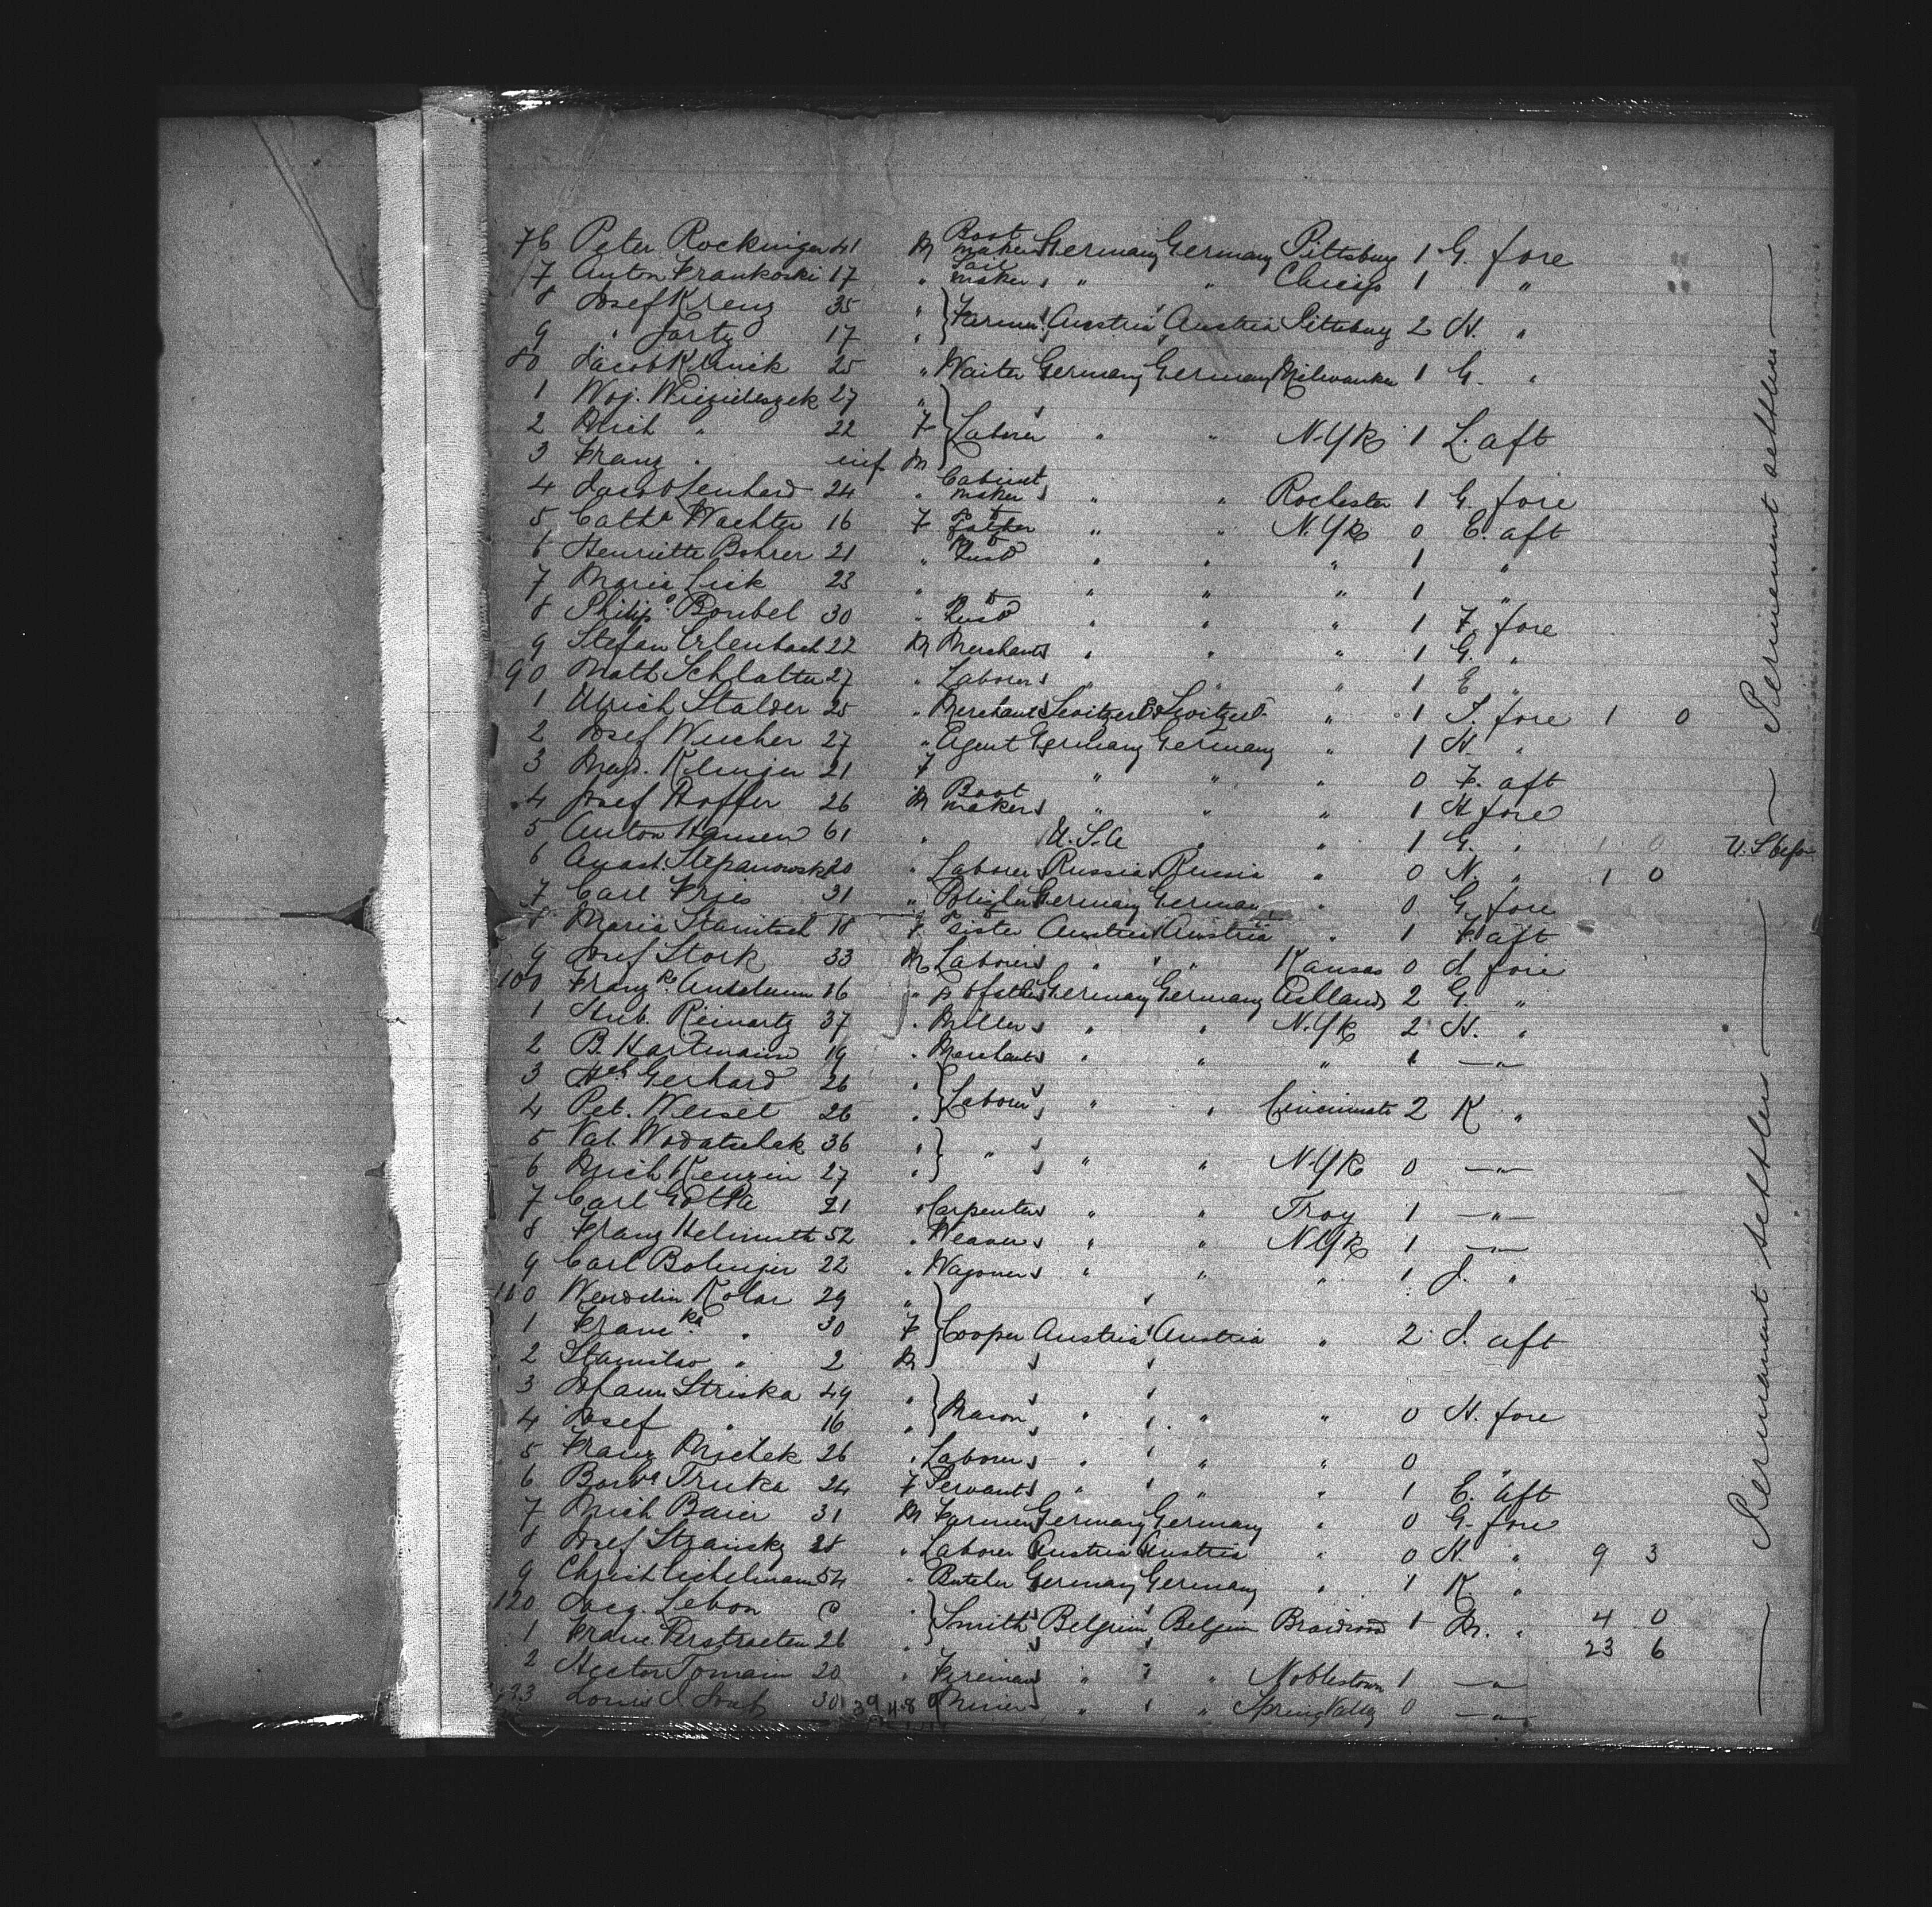 76 Peter Rockinger 41 M Boot maker Germany Germany Pittsburg 1 G. fore
7 Anton Frankoski 17 " maker " " Chicago 1 "
8 Josef Krenz 35 "
9 " 17 " } Farmer Austria Austria Pittsburg 2 H. "
80 Jacob 25 " Waiter Germany Germany Milwaukee 1 G. "
1 Woj. 27 "
2 Mich " 22 F } Laborer " " N.Yk 1 L. aft
3 Franz " inf M
4 Jacob Lenhard 24 " Cabinet maker " " Rochester 1 G. fore
5 Cathe Wachter 16 F to father " " N.Yk 0 E. aft
6 Henriette Bohrer 21 " to husbd " " " 1 "
7 Maria Lick 23 " " " " 1 "
8 Philip. Boubel 30 " to husbd " " " 1 F. fore
9 Stefan Erlenbach 22 M Merchant " " " 1 G. "
90 Math Schlatter 27 " Laborer " " " 1 E. "
1 Ulrich Stalder 25 " Merchant Switzerld Switzerld " 1 fore 1 0
2 Josef Wucher 27 " Agent Germany Germany " 1 H. "
3 Magd. Klinger 21 F " " " 0 F. aft
4 Josef Hoffer 26 M Boot maker " " " 1 H fore
5 Anton Hansen 61 " U.S.A " " 1 G. " 1 0
6 Stepanowsk 20 " Laborer Russia Russia " 0 N. " 1 0
7 Carl Fries 31 " Germany German " 0 G. fore
8 Maria Stanitsch 18 F to sister Austria Austria " 1 F. aft
9 Josef Stork 33 M Laborer " " Kansas 0 fore
100 Franz 16 " to father Germany Germany Ashland 2 G. "
1 Hub. Reinartz 37 " Miller " " N.Yk 2 H. "
2 B. Hartmann 19 " Merchant " " " 1 — " —
3 Gerhard 26 "
4 Pet. Weisel 26 " } Laborer " " Cincinnati 2 K "
5 Val. Wodatschek 36 "
6 Mich Kenzin 27 " } " " " N.Yk 0 — " —
7 Carl 21 " Carpenter " " Troy 1 — " —
8 Franz Helmuth 52 " Weaver " " N.Yk 1 — " —
9 Carl Bolinger 22 " Wagoner " " " 1 J. "
110 Wendelin Kolar 29 "
1 Franka " 30 F } Cooper Austria Austria " 2 J. aft
2 Stanislav " 2 M
3 Johann Striska 49 "
4 Josef " 16 " } Mason " " " 0 H. fore
5 Franz Michek 26 " Laborer " " " 0 "
6 Barba Truka 24 F Servant " " " 1 E. aft
7 Mich Baier 31 M Farmer Germany Germany " 0 G. fore
8 Josef Stransky 28 " Laborer Austria Austria " 0 H. " 9 3
9 Christ Eichelmann 54 " Butcher Germany Germany " 1 K. "
120 Jacq. Lebon
1 Verstraeten 26 " } Smith Belgium Belgium Braidwood 1 M. " 4 0
23 6
2 Hector Tomain 20 " Fireman " " Noblestown 1 — " —
123 Louis 30 Miner " " Spring Valley 0 — " —
39 48 9
Permanent settlers
Permanent settlers